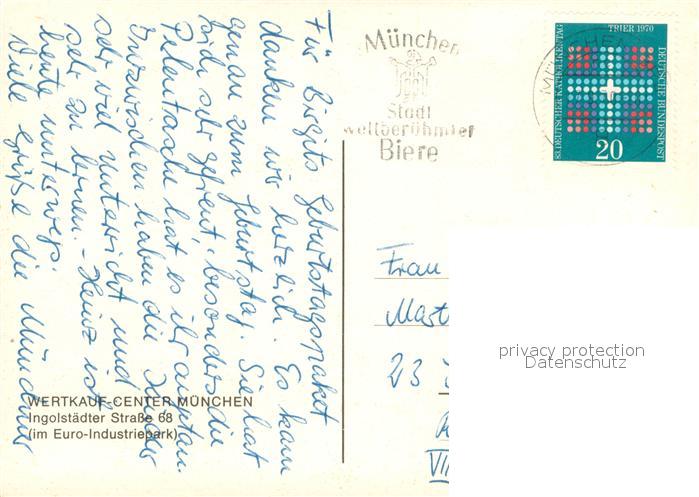 Für Birgits Geburtstagspaket
danken wir herzlich. Es kam
genau zum Geburtstag. Sie hat
sich sehr gefreut, besonders die
Pelentasche hat es ihr angetan.
Inzwischen haben die Kinder
sehr viel Unterricht und
sehr zu lernen. - Heinz ist
heute unterwegs.
Viele Grüße die Münchner
München
Stadt
weltberühmter
Biere
83. DEUTSCHER KATHOLIKENTAG
TRIER 1970
DEUTSCHE BUNDESPOST
20
Frau
Mart
23
VII
WERTKAUF-CENTER MÜNCHEN
Ingolstädter Straße 68
(im Euro-Industriepark)
privacy protection
Datenschutz